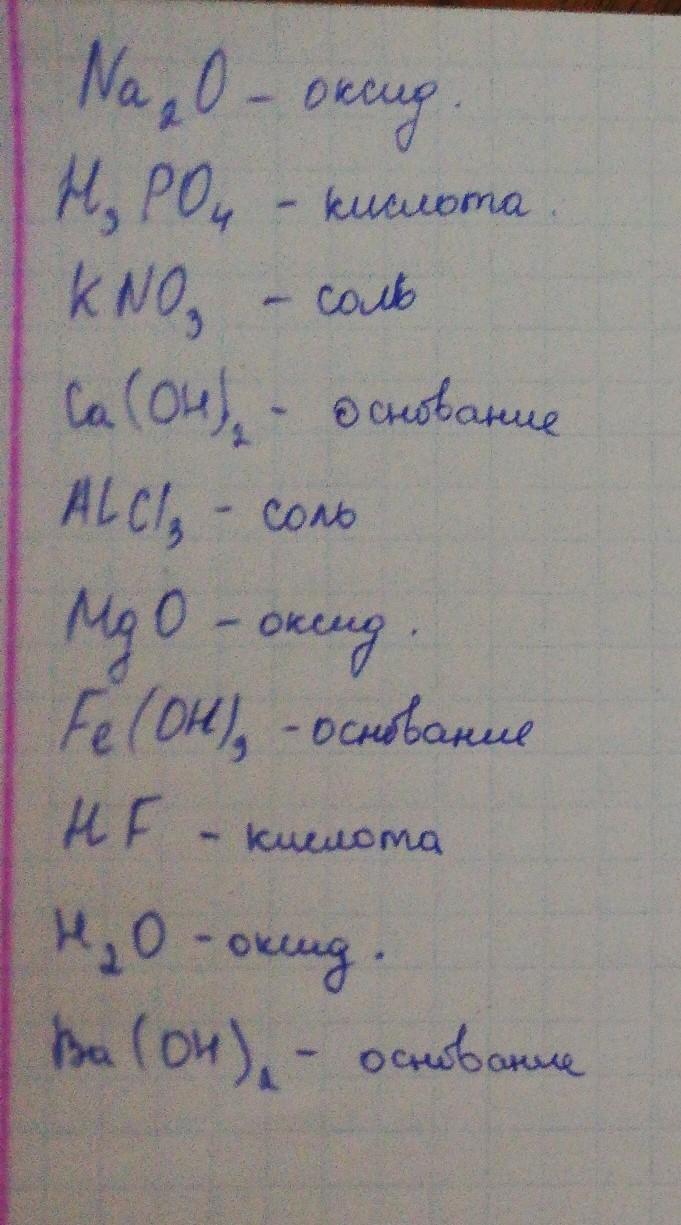 Na₂O – оксид.
H₃PO₄ – кислота.
KNO₃ – соль
Ca(OH)₂ – основание
ALCl₃ – соль
MgO – оксид.
Fe(OH)₃ – основание
HF – кислота
H₂O – оксид.
Ba(OH)₂ – основание